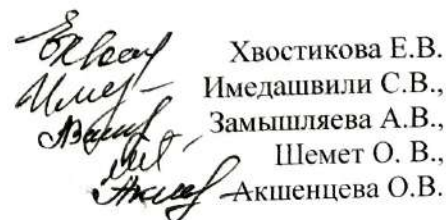 Хвостикова Е.В.
Имедашвили С.В.,
Замышляева А.В.,
Шемет О. В.,
Акшенцева О.В.